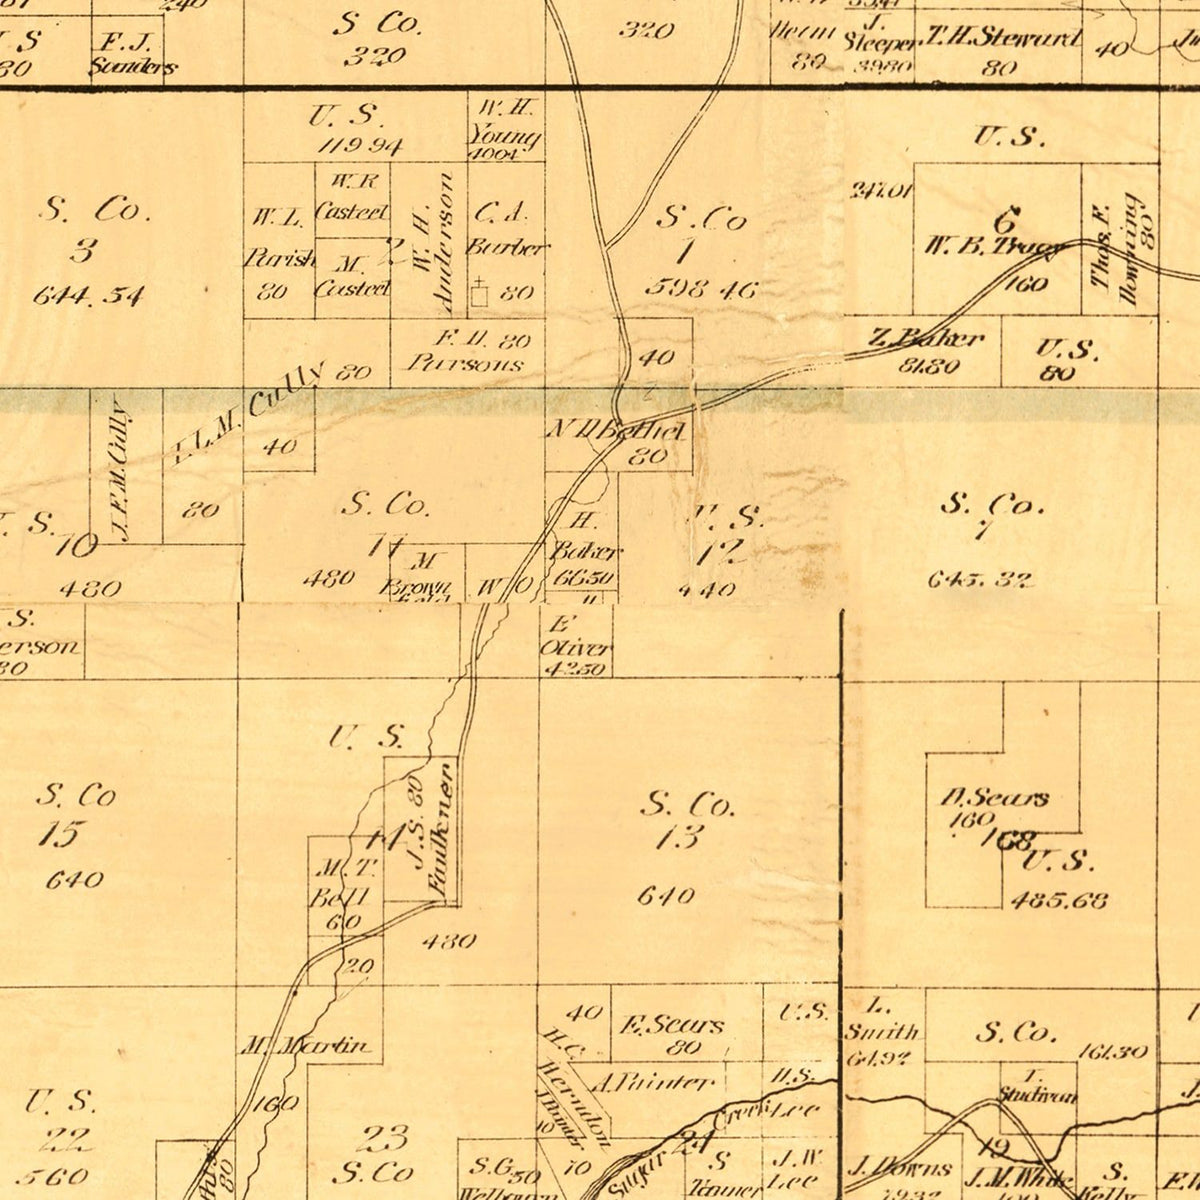 240
S Co.
320
320
F. J.
Sanders
80
J.
Sleeper
39.80
T. H. Steward
80
40
U. S.
119 94
W. H.
Young
4004
U. S.
S. Co.
3
644.54
W. L.
Parish
80
W. R
Casteel
M.
Casteel
2
W. H.
Anderson
C. A.
Barber
80
S. Co
1
598 46
247.01
6
W. B. Tracy
160
Thos. F.
Downing
80
F. D. 80
Parsons
80
40
Z. Baker
81.80
U. S.
80
J. F. M. Cully
I. L. M. Cully
80
40
N D Bethel
80
S. Co.
11
480
H.
Baker
6650
U. S.
12
440
S. Co.
7
645.32
S.
10
480
M
Brown
W
O
S.
erson
80
E
Oliver
4250
U. S.
S. Co
15
640
J. S. 80
Faulkner
14
M. T.
Bell
60
20
480
S. Co.
13
640
D. Sears
160
168
U. S.
485.68
40
E. Sears
80
U. S.
L.
Smith
64.92
S. Co.
161.30
M. Martin
160
H. C.
Herndon
A. Painter
H. S.
Lee
Sugar Creek
T.
Studivan
U. S.
22
560
23
S. Co
80
S. G. 50
Welbourn
10
70
24
S
Tanner
J. W.
Lee
J. Downs
19
J. M. White
S.
Kelly